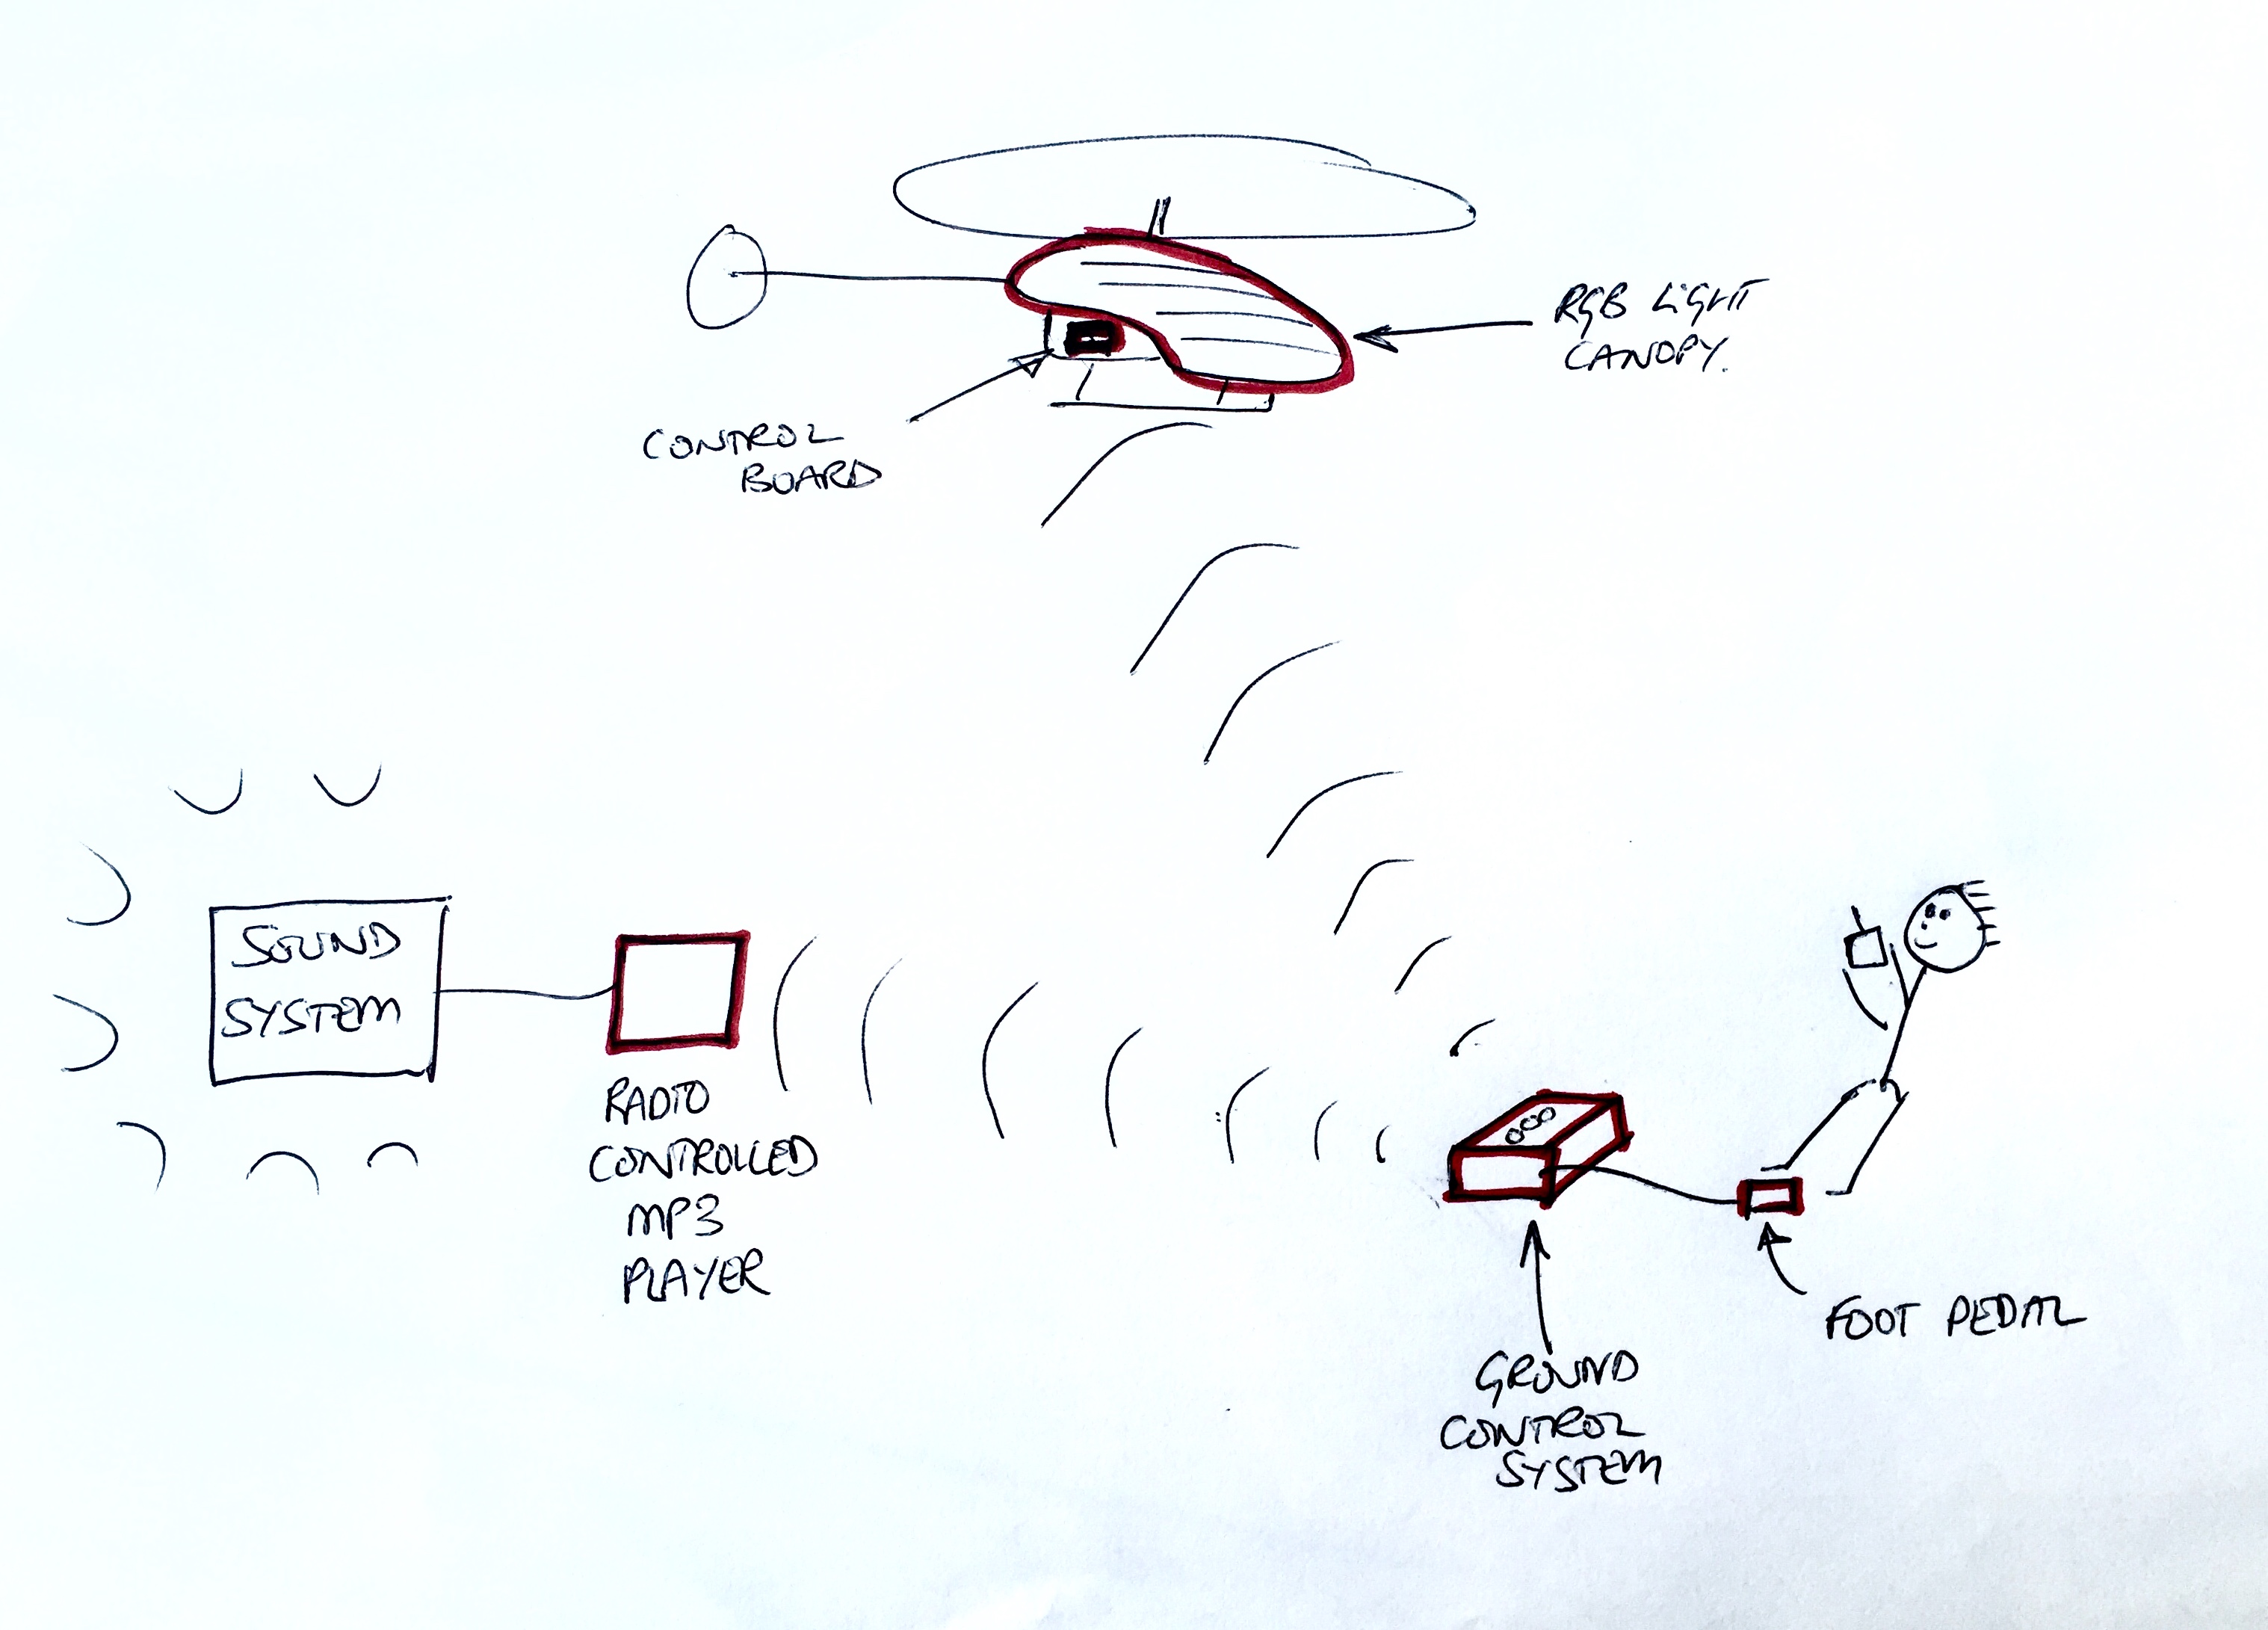 RGB LIGHT
CANOPY.
CONTROL
BOARD
SOUND
SYSTEM
RADIO
CONTROLLED
MP3
PLAYER
FOOT PEDAL
GROUND
CONTROL
SYSTEM